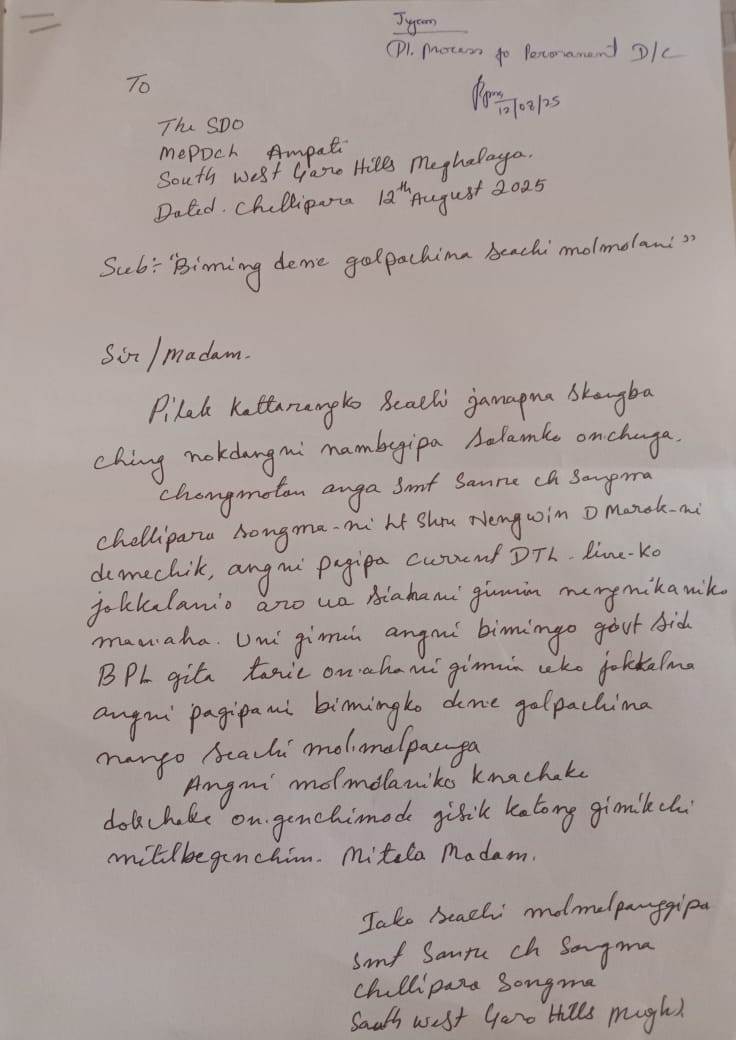 Jyam
Pl. process to Peromanent D/C
12/08/25
To
The SDO
MePDCL Ampati
South West Garo Hills Meghalaya.
Dated. Chellipara 12th August 2025
Sub:- "Biming dene galpachina seachi molmolani"
Sir/Madam.
Pilak kattarangko seachi janapna skangba
ching nokdangni nambegipa salamko onchaga.
Chongmotan anga Smt Sanre ch Sangma
chellipara songma-ni Lt Shru Nengwin D Marak-ni
demechik, angni pagipa current DTL-line-ko
jakkalanio aro ua siahani gimin nengnikaniko
man·aha. Uni gimin angni bimingo govt sid
BPL gita taric on·ahani gimin uko jakkalna
angni pagipani bimingko dene galpachina
nango seachi mol·molpaenga
Angni molmolaniko knachake
dakchake on·genchimode gisik katong gimikchi
mitelbegenchim. Mitela Madam.
Iako seachi molmolpaenggipa
Smt Sanre ch Sangma
Chellipara Songma
South West Garo Hills Megh.